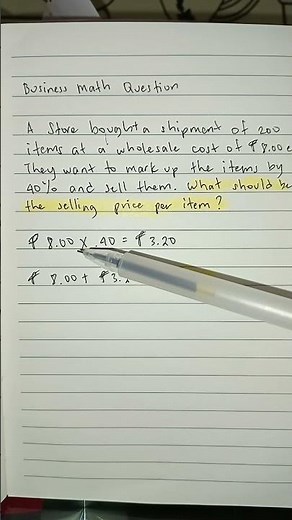 Business Math Question
A Store bought a shipment of 200
items at a wholesale cost of ₱8.00 e
They want to mark up the items by
40% and sell them. What should be
the selling price per item?
₱ 8.00 × .40 = ₱3.20
₱ 8.00 + ₱3.